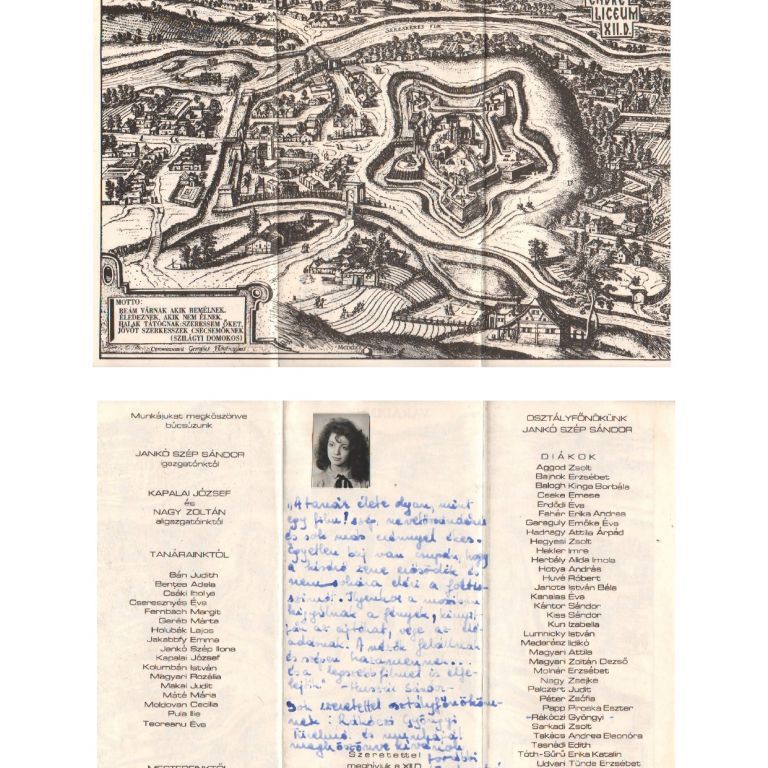 SEBESKERES FLW
ENDRE
LICEUM
XII.D.
MOTTO:
REÁM VÁRNAK AKIK REMÉLNEK,
ÉLEDEZNEK, AKIK NEM ÉLNEK.
HALAK TÁTOGNAK: SZERESSEM ŐKET,
JÖVŐT SZERKESSZEK CSECSEMŐKNEK
(SZILÁGYI DOMOKOS)
Georgius
Munkájukat megköszönve
búcsúzunk
JANKÓ SZÉP SÁNDOR
igazgatónktól
KAPALAI JÓZSEF
és
NAGY ZOLTÁN
aligazgatóinktól
TANÁRAINKTÓL
Bán Judith
Benţea Adela
Csáki Ibolya
Cseresznyés Éva
Fernbach Margit
Geréb Márta
Holubák Lajos
Jakabbfy Emma
Jankó Szép Ilona
Kapalai József
Kolumbán István
Magyari Rozália
Makai Judit
Máté Mária
Moldovan Cecilia
Puia Ilie
Teoreanu Éva
MESTEREINKTŐL
„A tanár élete olyan, mint
egy film! szép, nevetős
és sok más erénnyel ékes.
Egyetlen baj van csupán, hogy
a kísérő zene erősödik és
nem sokára eléri a
Ilyenkor a moziban
kigyúlnak a fények,
ják az ajtókat, vége az elő-
adásnak. A nézők felállnak
és szépen hazamennek...
és a legszebb filmet is elfe-
lejtik" -
Sok szeretettel osztályfőnököm-
nek: Rákóczi Gyöngyi
megköszönve
Szeretettel
meghívjuk a XII.D
OSZTÁLYFŐNÖKÜNK
JANKÓ SZÉP SÁNDOR
DIÁKOK
Aggod Zsolt
Bajnok Erzsébet
Balogh Kinga Borbála
Cseke Emese
Erdődi Éva
Fehér Erika Andrea
Garaguly Emőke Éva
Hadnagy Attila Árpád
Hegyesi Zsolt
Hekler Imre
Herbály Alida Imola
Hotya András
Huvé Róbert
Janota István Béla
Kanalas Éva
Kántor Sándor
Kiss Sándor
Kun Izabella
Lumnicky István
Madarász Ildikó
Magyari Attila
Magyari Zoltán Dezső
Molnár Erzsébet
Nagy Zsejke
Palczert Judit
Péter Zsófia
Papp Piroska Eszter
Rákóczi Gyöngyi
Sarkadi Zsolt
Takács Andrea Eleonóra
Tasnádi Edith
Tóth-Sűrű Erika Katalin
Udvari Tünde Erzsébet